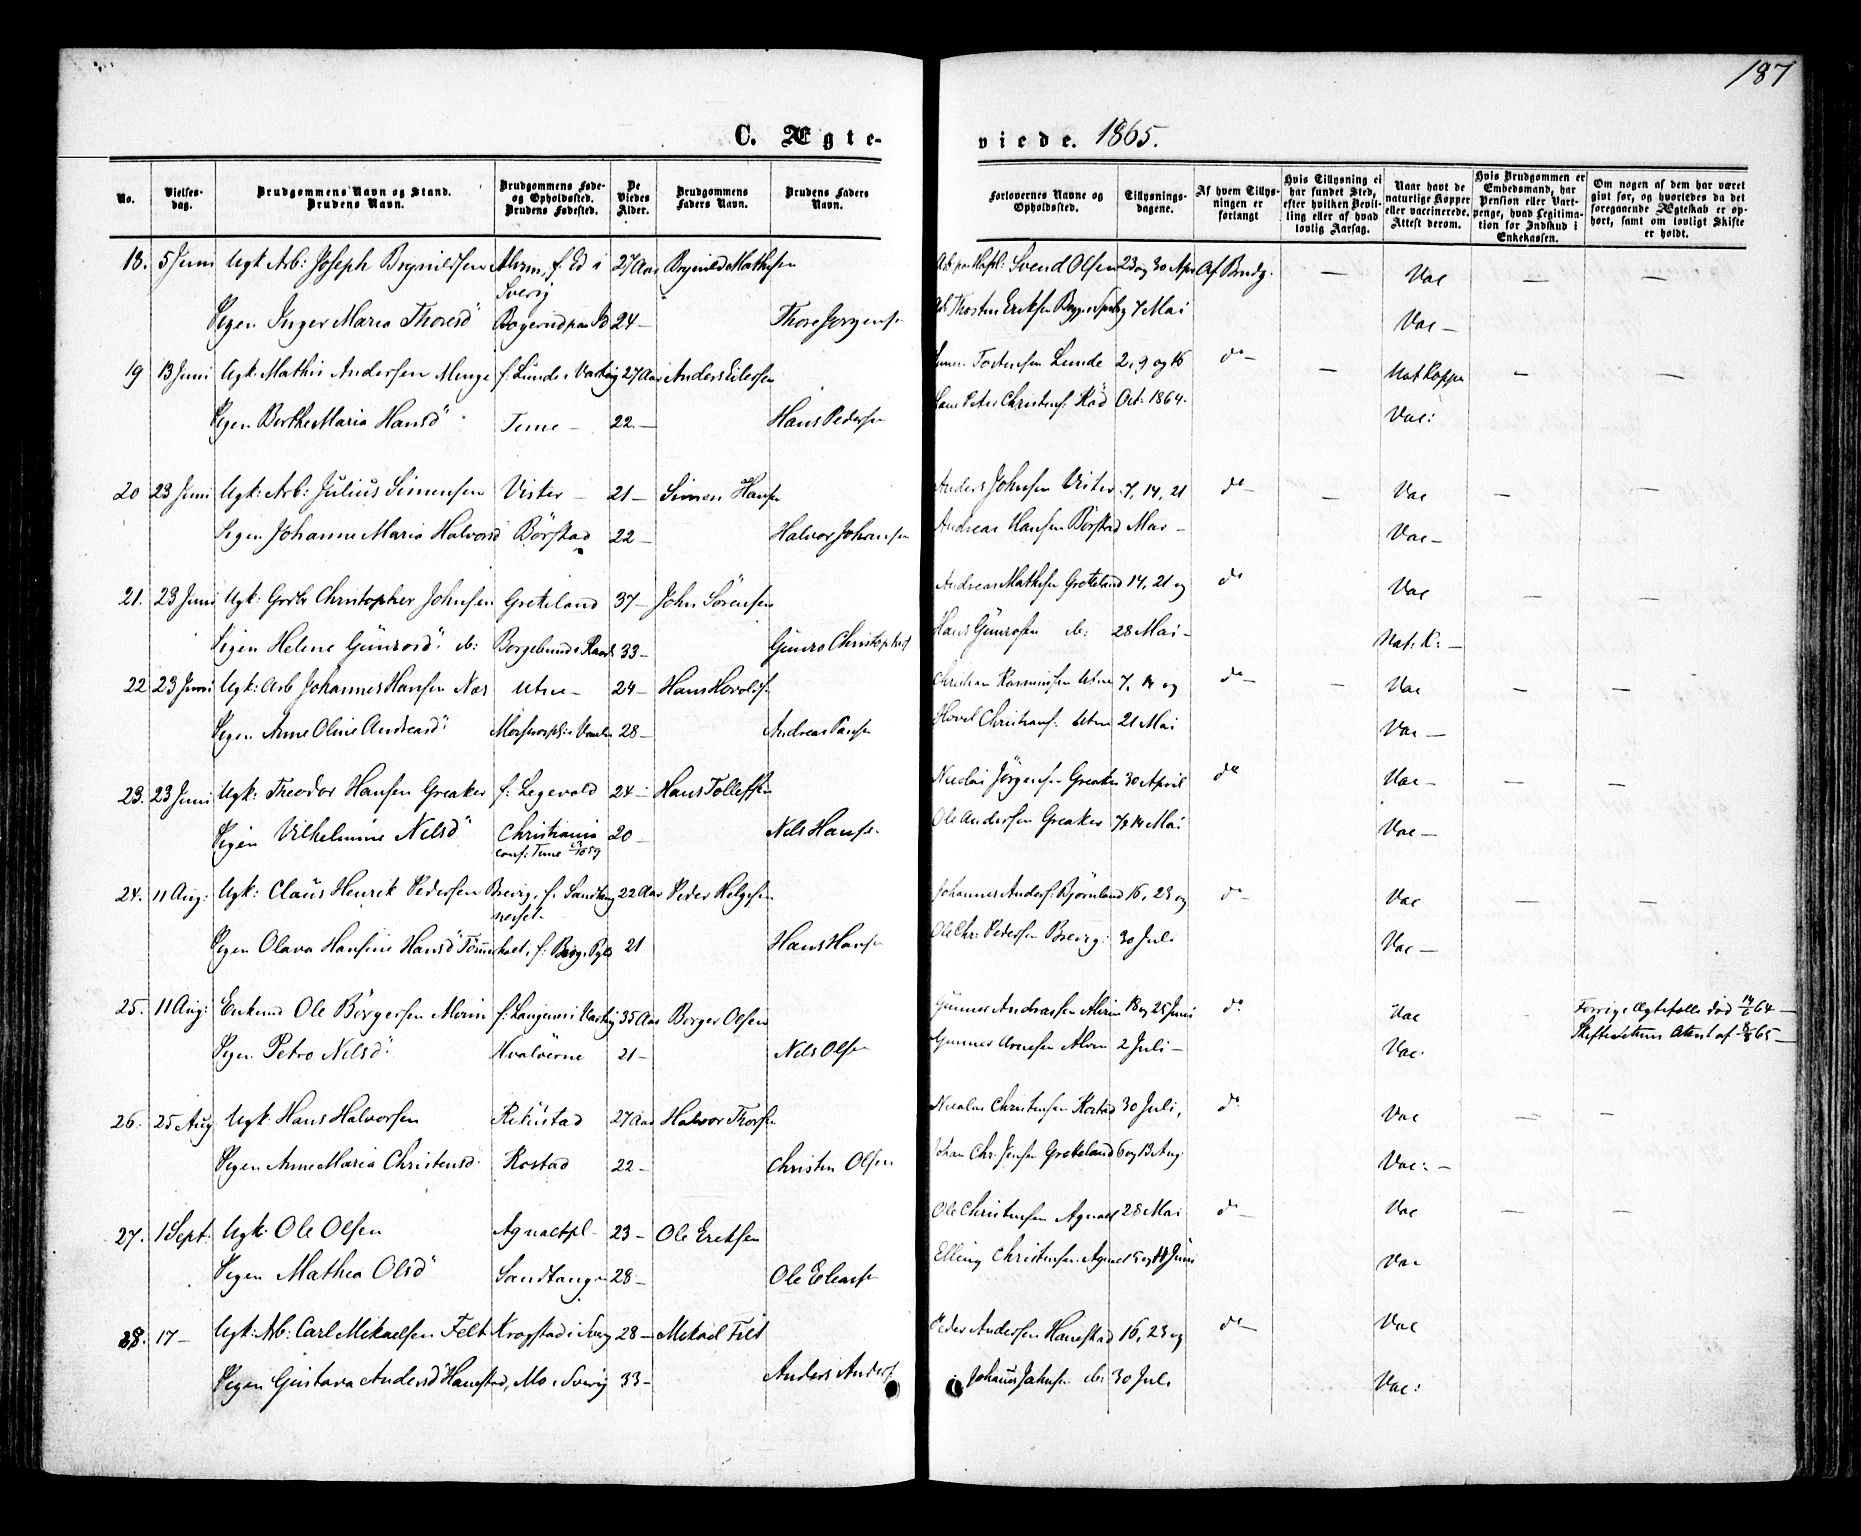 187
C. Ægte-
viede. 1865.
No.
Vielses-
dag.
Brudgommens Navn og Stand.
Brudens Navn.
Brudgommens Føde-
og Opholdssted.
Brudens Fødested.
De
Viedes
Alder.
Brudgommens
Faders Navn.
Brudens Faders
Navn.
Forlovernes Navne og
Opholdssted.
Tillysnings-
dagene.
Af hvem Tillys-
ningen er
forlangt
Hvis Tillysning ei
har fundet Sted,
efter hvilken Bevil-
ling eller af hvad
lovlig Aarsag.
Naar havt de
naturlige Kopper
eller vaccinerede.
Attest derom.
Hvis Brudgommen er
Embedsmand, har
Pension eller Vart-
penge, hvad Legitima-
tion for Indskud i
Enkekassen.
Om nogen af dem har været
givt før, og hvorledes da det
foregaaende Ægteskab er op-
hørt, samt om lovligt Skifte
er holdt.
18. 5 Juni Ugk Arb: Joseph Brynildsen Alvim, f. Ed i 27 Aar Brynild Mathisen Svend Olsen 23 og 30 Apr Af Brudg. — Vac — —
Sverig
Pigen Inger Maria Thoresd" 24 — Thore Jørgens. Thosten Eriksen 7 Mai Vac —
19 13 Juni Ugk. Mathis Andersen Menge f. Lunde i Varteig 27 Aar Anders Eilersen Tostensen Lunde 2, 9 og 16 do — — Nat Kopper — —
Pigen Berthe Maria Hansd" Tune — 22 — Hans Pedersen Hans Peter Christens. Råd Oct. 1864. Vac:
20 23 Juni Ugk: Arb: Julius Simensen Vister — 21 — Simen Hansen Anders Johnsen Vister 7, 14, 21 do — — Vac — —
Pigen Johanne Maria Halvorsd Börstad 22 — Halvor Johansen Andreas Hansen Börstad Mai — Vac —
21. 23 Juni Ugk: Grdbr Christopher Johnsen Greteland 37 — John Sörensen Andreas Mathisen Greteland 14, 21 og do Vac — —
Pigen Helene Gunrosd" ib: 33 — Gunro Christophers Hans Gunrosen ib: 28 Mai — Nat: K: —
22 23 Juni Ugk: Arb Johannes Hansen Næs Utne — 24 — Hans Hovelsen Christian Rasmussen Utne 7, 14 og do — — Vac — —
Pigen Anne Oline Andreasd" 28 — Andreas Hovel Christians. Utne 21 Mai Vac —
23. 23 Juni Ugk: Theodor Hansen Greaker f: Legevold 24 — Hans Tollefsen Nicolai Jörgensen Greaker 30 April do Vac — — —
Pigen Vilhelmine Nelsd" Christiania 20 — Nels Hansen Ole Andersen Greaker 7, 14 Mai Vac —
conf: Tune 1859
24. 11 Aug: Ugk: Claus Henrik Pedersen Brevig, f. Sandtang 22 Aar Peder Helgesen Johannes Anders: Bjørnland 16, 23 og do Vac — —
Pigen Olava Hansine Hansd" 21 Hans Hansen Ole Chr. Pedersen Brevig: 30 Juli Vac —
25. 11 Aug: Enkmd Ole Börgersen Alvim f: i Varteig 35 Aar Borger Olsen Gunner Andreassen Alvim 18 og 25 Juni do Vac Forrige Ægtefælle död 14/6 64 —
Pigen Petra Nelsd" Hvalöerne 21 — Nels Olsen Gunner Arnesen Alvim 2 Juli — Vac. Skifterettens Attest af 8/8 65 —
26. 25 Aug Ugk. Hans Halvorsen Rekustad 27 Aar Halvor Thorsen Nicolai Christensen Rostad 30 Juli, do Vac — —
Pigen Anne Maria Christensd. Rostad 22 — Christen Olsen Johan Chr. Jensen Greteland 6 og 13 Aug. Vac: —
27. 1 Sept. Ugk: Ole Olsen Agnaletpl — 23 — Ole Eriksen Ole Christensen Agnalt 28 Mai do — Vac — —
Pigen Mathea Olsd" Sandtangen 28 — Ole Eliass Elling Christensen Agnalt 5 og 11 Juni Vac
28. 17 — Ugk: Arb: Carl Mikaelsen Felt Krogstad i Sverig 28 — Mikael Felt Peder Andersen Hanestad 16, 23 og do — Vac
Pigen Gustava Andersd" Hanestad, Mo i Sverig 33 — Anders Anders. Johannes Johnsen ib: 30 Juli Vac: